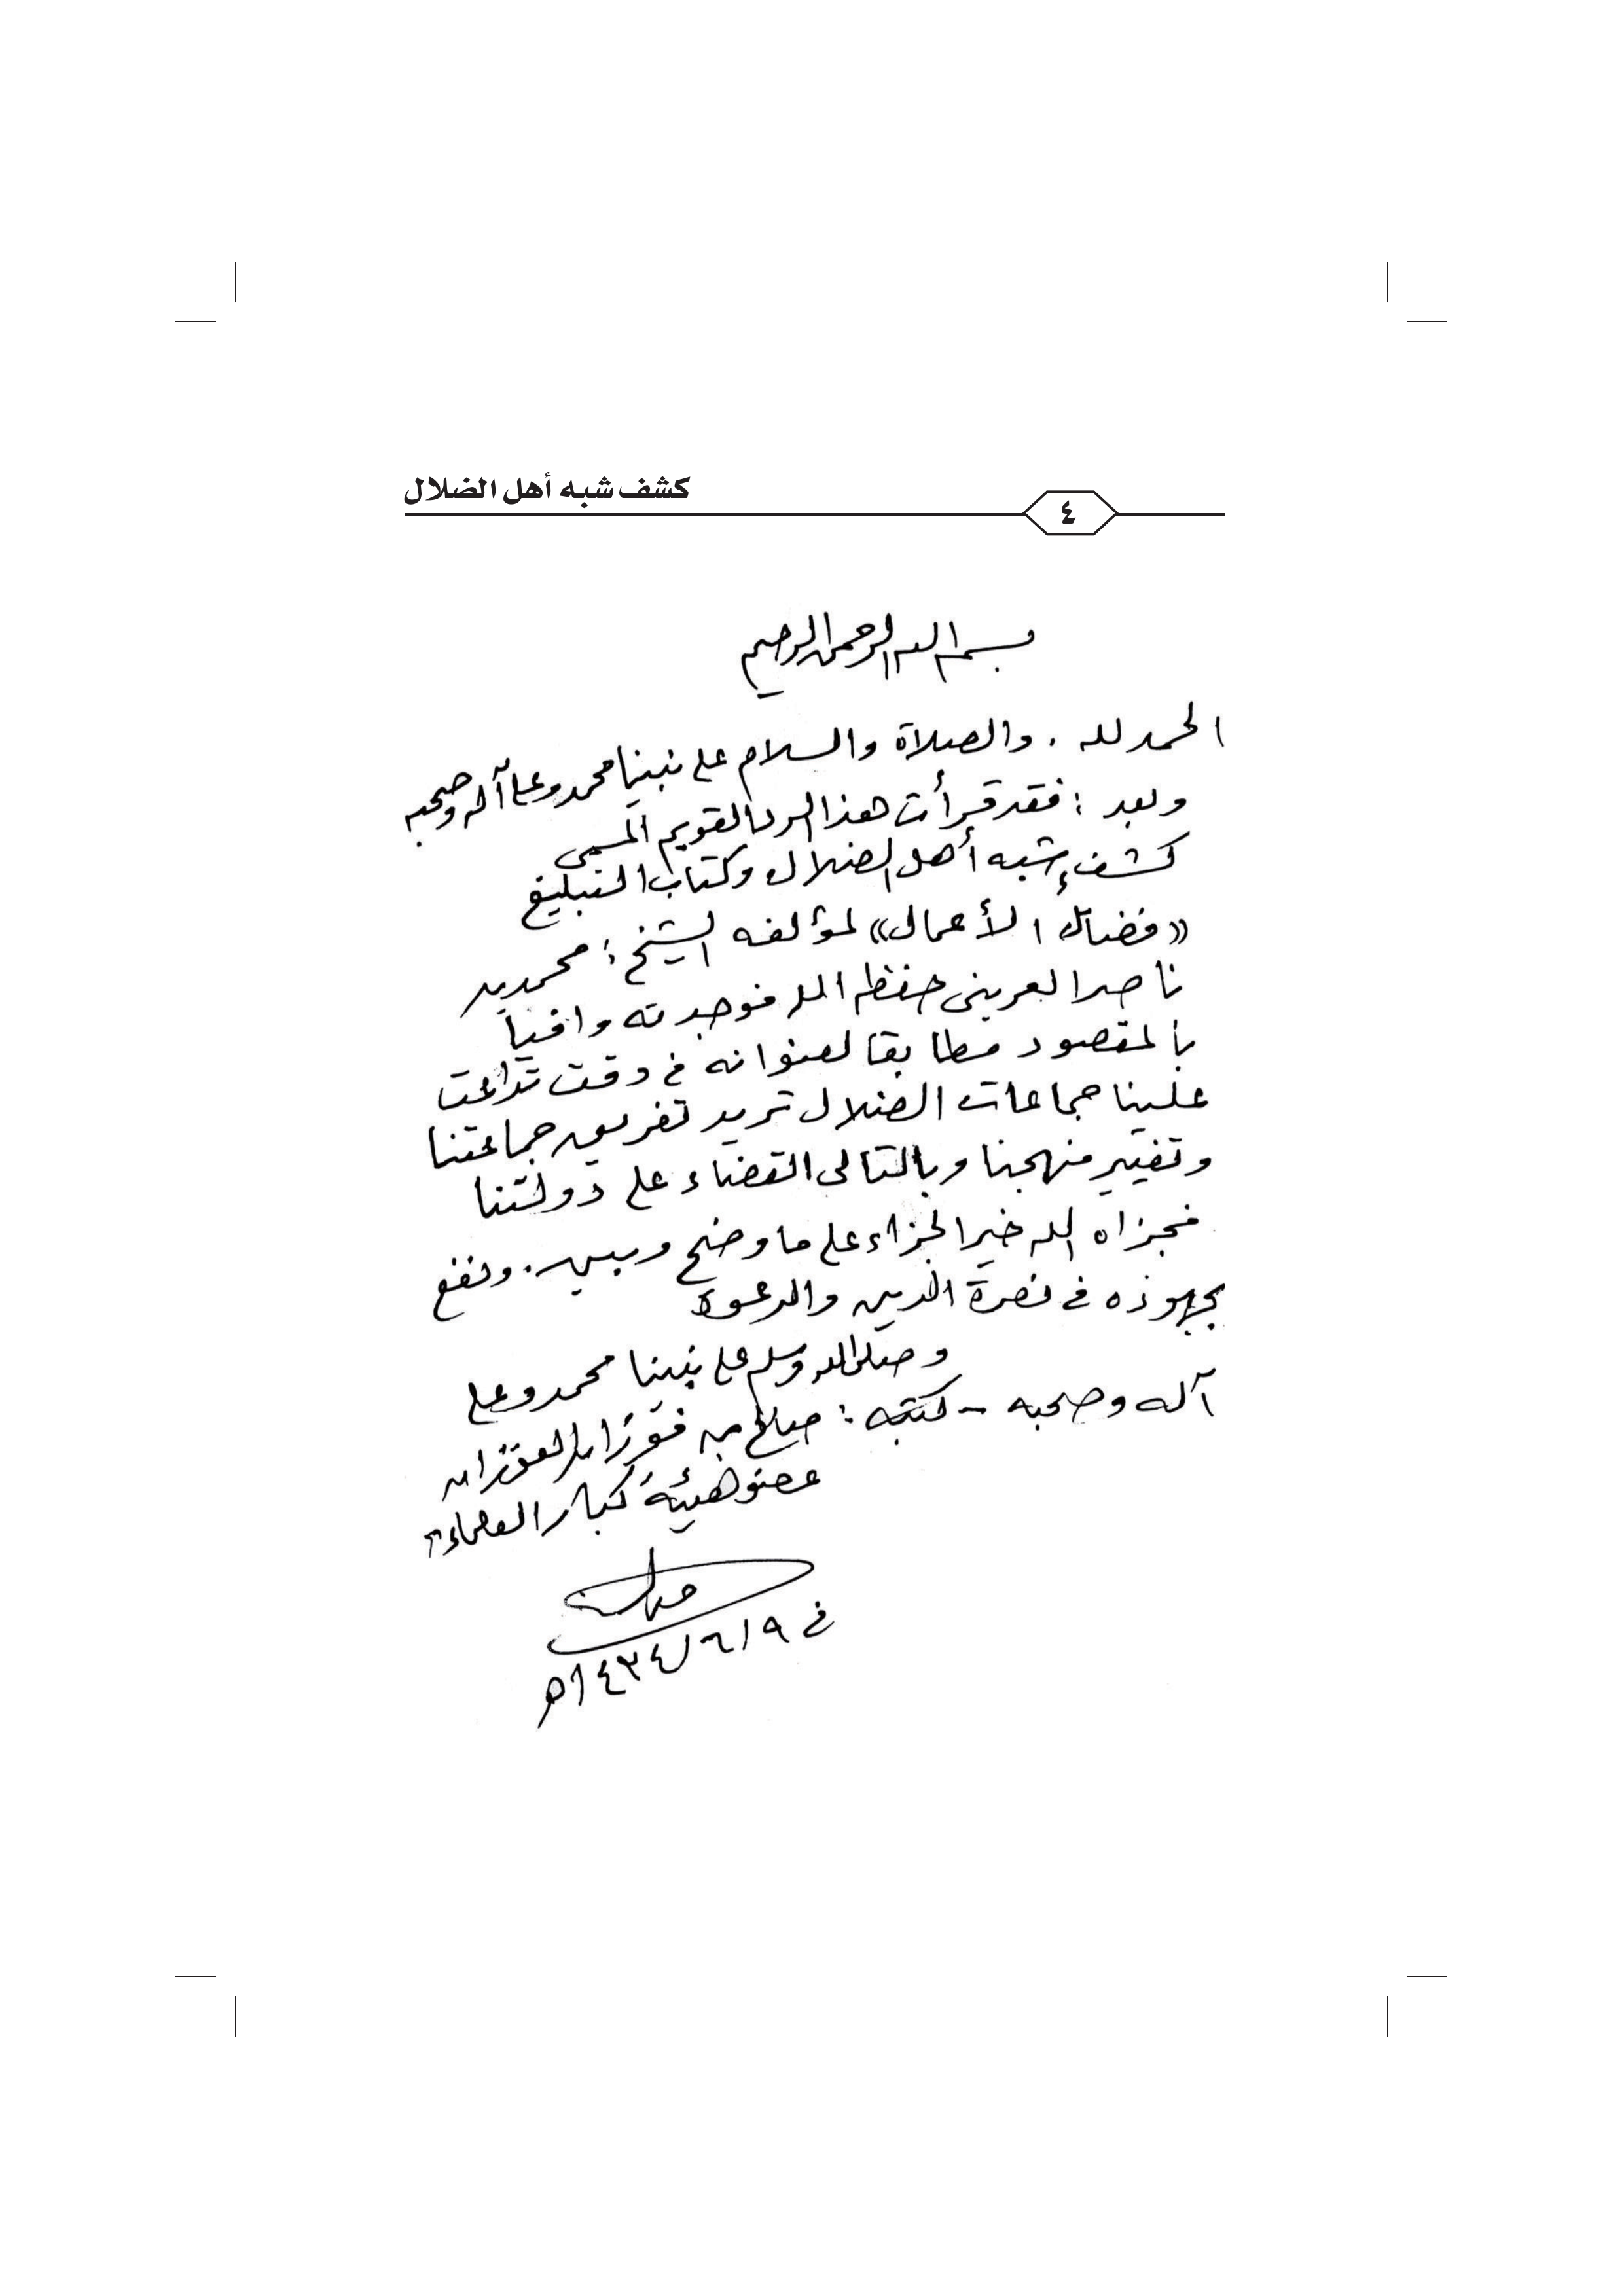 كشف شبه أهل الضلال
٤
بسم الله الرحمن الرحيم
الحمد لله . والصلاة والسلام على نبينا محمد وعلى آله وصحبه
وبعد : فقد قرأت هذا الرد القويم المسمى
كشف شبه أهل الضلال وكتاب التبليغ
«فضائل الأعمال» لمؤلفه الشيخ : محمد بن
ناصر العريني حفظه الله فوجدته وافياً
بالمقصود مطابقا لعنوانه في وقت تداعت
علينا جماعات الضلال تريد تفريق جماعتنا
وتغيير منهجنا وبالتالى القضاء على دولتنا
فجزاه الله خير الجزاء على ما وضح وبين . ونفع
بجهوده في نصرة الدين والدعوة
وصلى الله وسلم على نبينا محمد وعلى
آله وصحبه - كتبه : صالح بن فوزان الفوزان
عضو هيئة كبار العلماء
في ٩/٦/١٤٣٤هـ